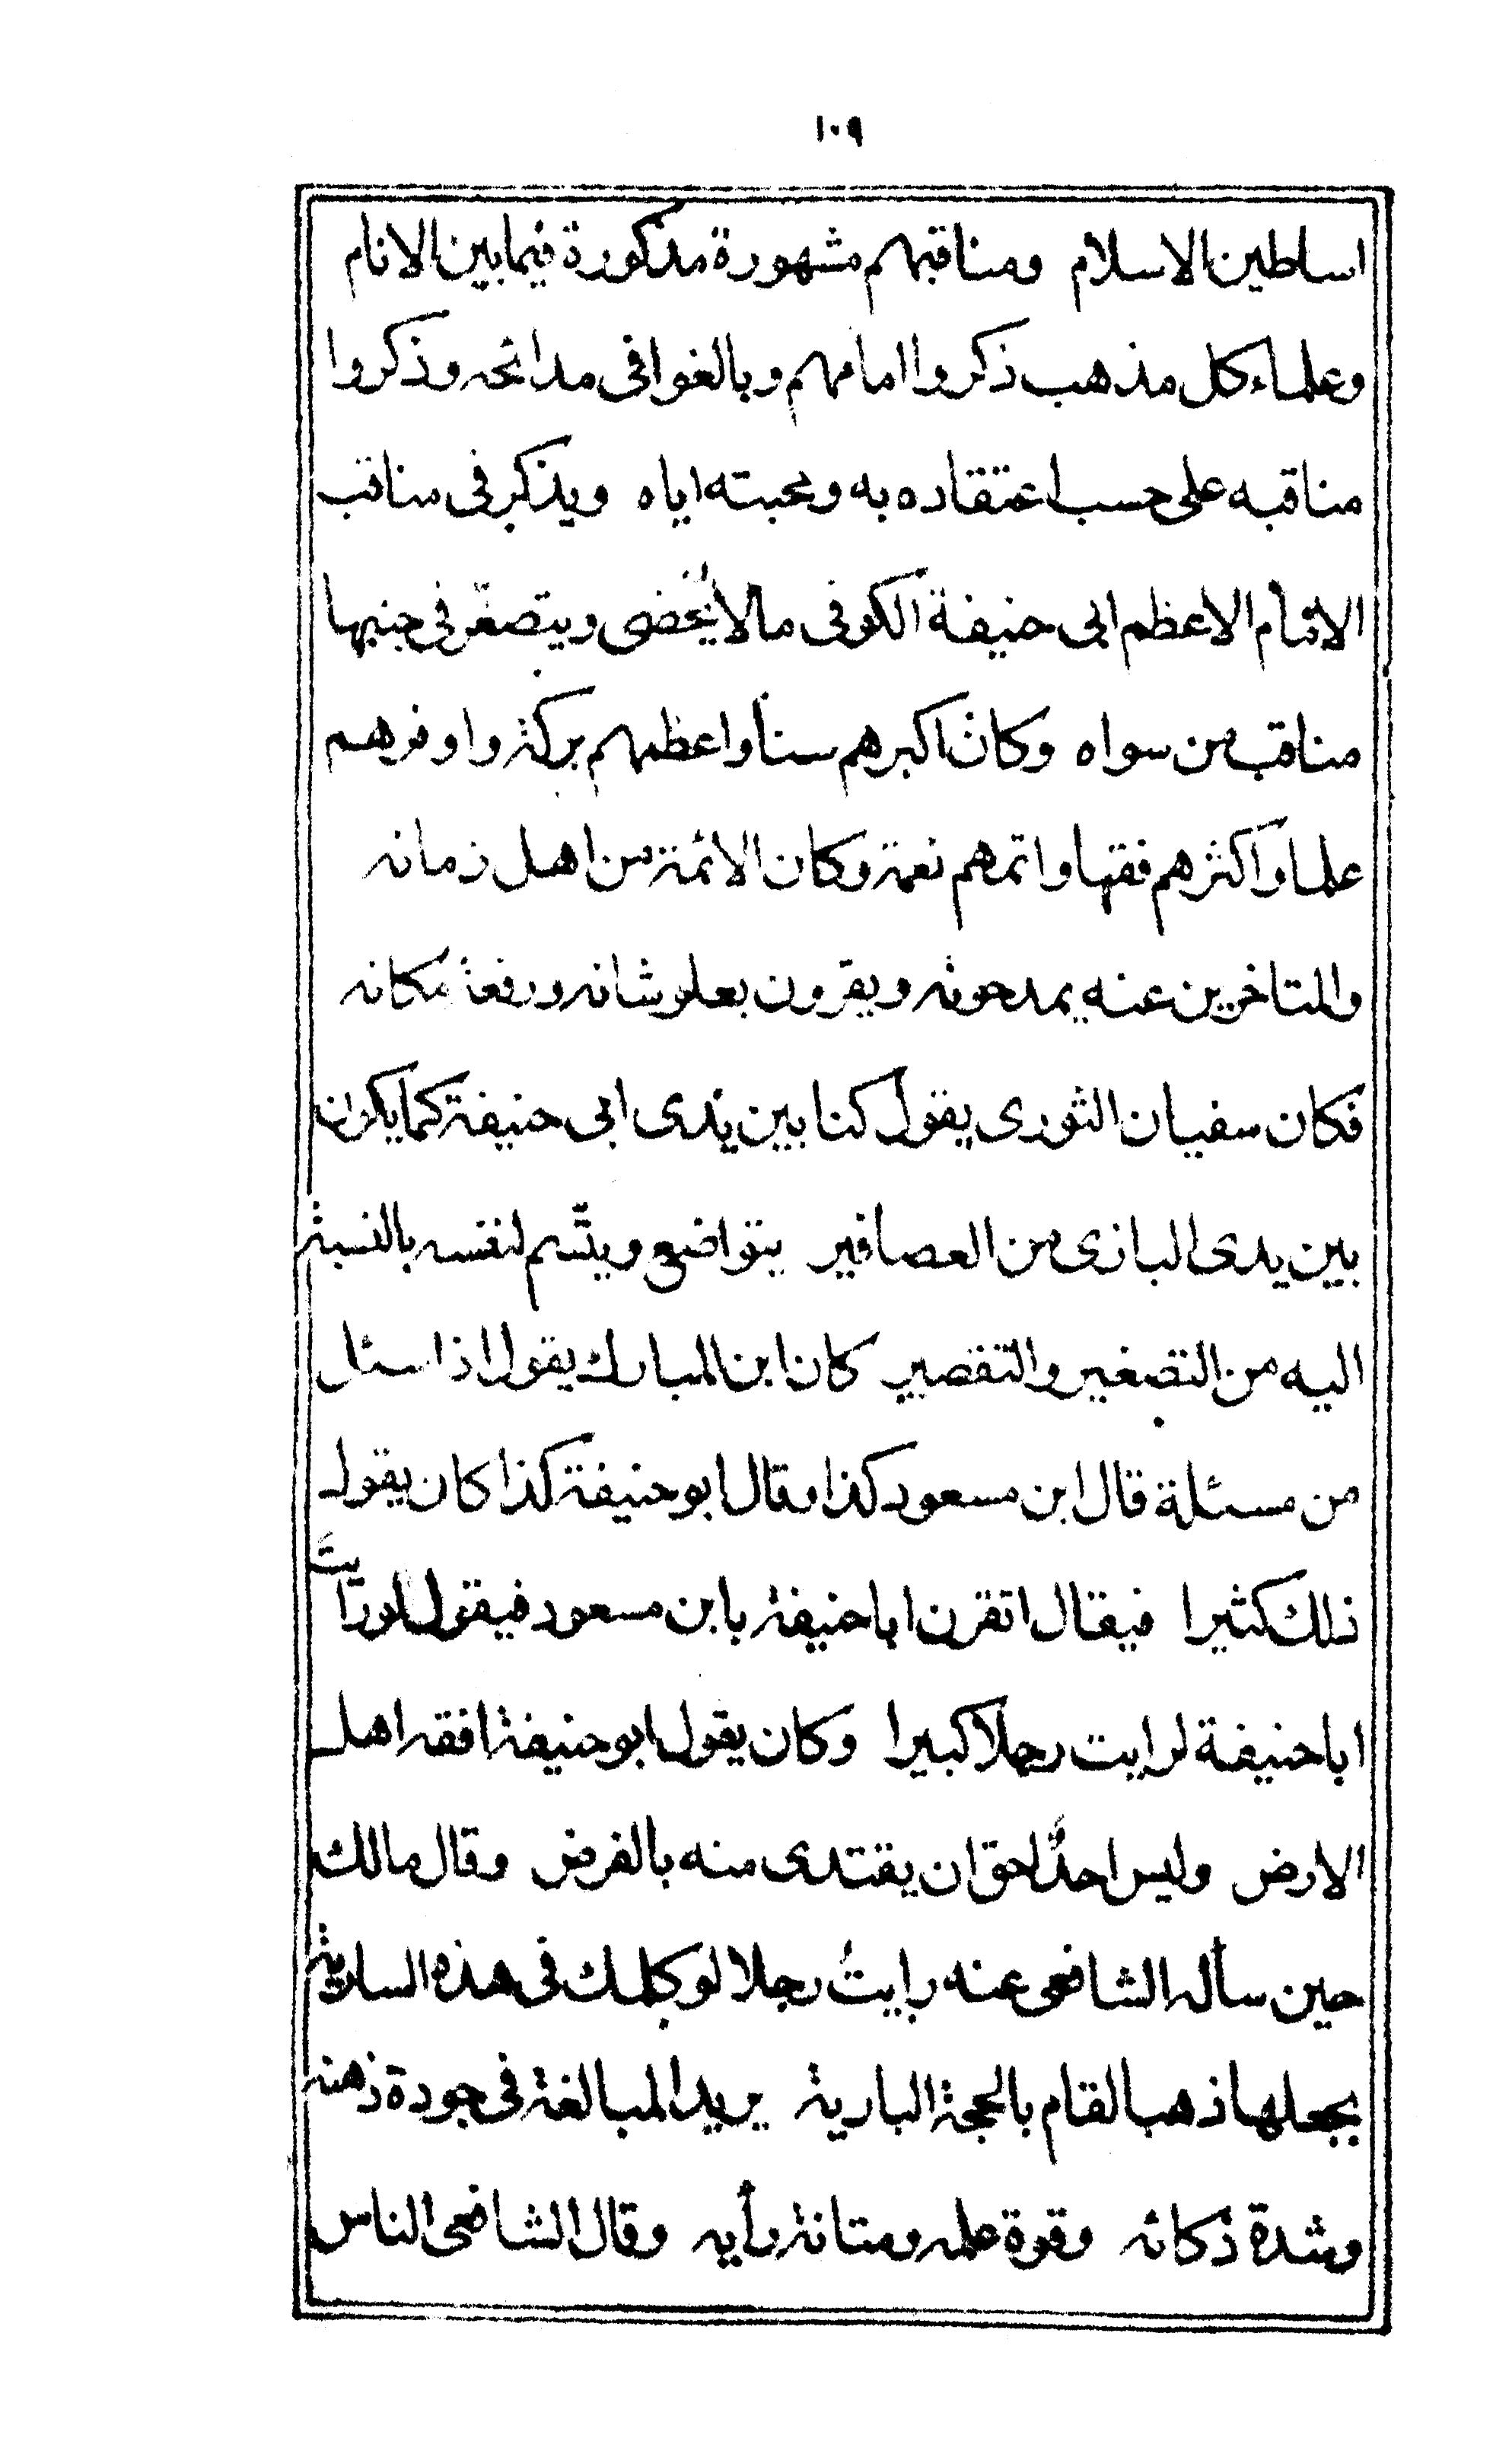 ١٠٩
اساطين الاسلام ومناقبهم مشهورة مذكورة فيما بين الانام
وعلماء كل مذهب ذكروا امامهم وبالغوا فى مدائحه وذكروا
مناقبه على حسب اعتقاده به ومحبته اياه ويذكر فى مناقب
الامام الاعظم ابى حنيفة الكوفى مالا يُحصى ويتصغّر فى جنبها
مناقب من سواه وكان اكبرهم سناً واعظمهم بركة واوفرهم
علما واكثرهم فقها واتمهم نعمة وكان الائمة من اهل زمانه
والمتاخرين عنه يمدحونه ويقرون بعلو شانه ورفعة مكانه
فكان سفيان الثورى يقول كنا بين يدى ابى حنيفة كما يكون
بين يدى البازى من العصافير يتواضع ويتّسم لنفسه بالنسبة
اليه من التصغير والتقصير كان ابن المبارك يقول اذا سئل
من مسئلة قال ابن مسعود كذا وقال ابو حنيفة كذا كان يقول
ذلك كثيرا فيقال اتقرن ابا حنيفة بابن مسعود فيقول لو رايتَ
ابا حنيفة لرايت رجلا كبيرا وكان يقول ابو حنيفة افقه اهل
الارض وليس احدٌ احق ان يقتدى منه بالفرض وقال مالك
حين سأله الشافعى عنه رايتُ رجلا لو كلمك فى هذه السارية
يجعلها ذهبا لقام بالحجة البارية يريد المبالغة فى جودة ذهنه
وشدة ذكائه وقوة علمه ومتانة رأيه وقال الشافعى الناس